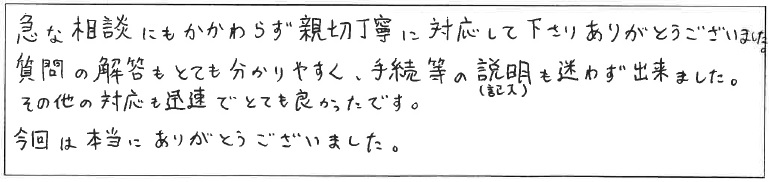 急な相談にもかかわらず親切丁寧に対応して下さりありがとうございました。
質問の解答もとても分かりやすく、手続等の説明も迷わず出来ました。
(記入)
その他の対応も迅速でとても良かったです。
今回は本当にありがとうございました。